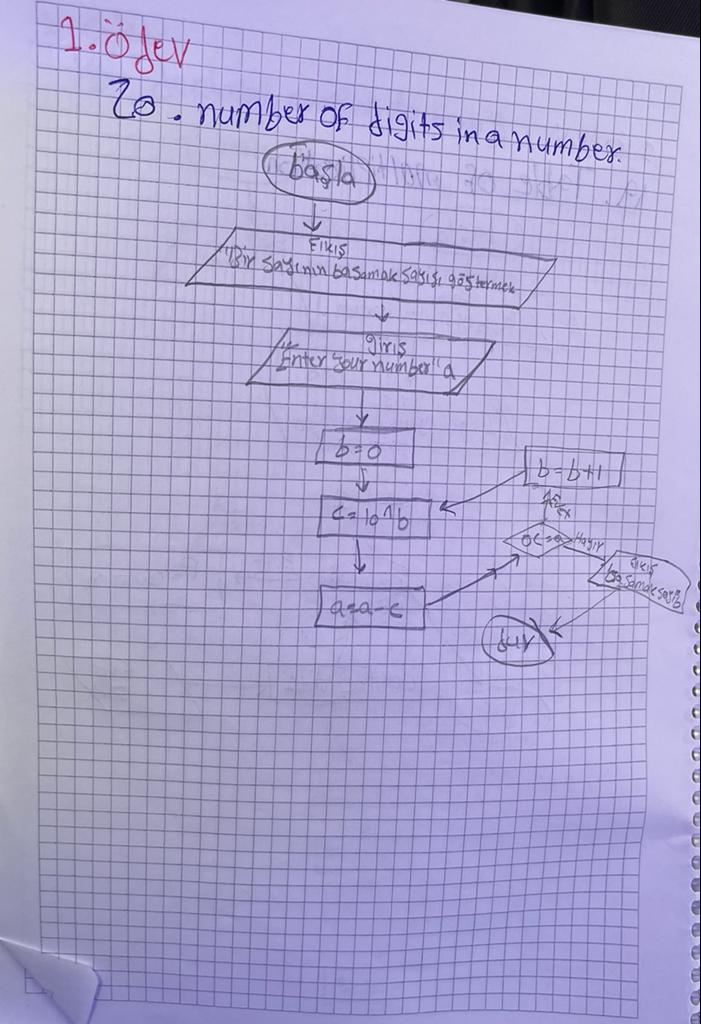 1. ödev
20. number of digits in a number.
başla
Çıkış
"Bir sayının basamak sayısı göstermek
giriş
"Enter your number" a
b=0
b=b+1
c=10^b
0<=a
Hayır
Çıkış
basamak
a=a-c
dur